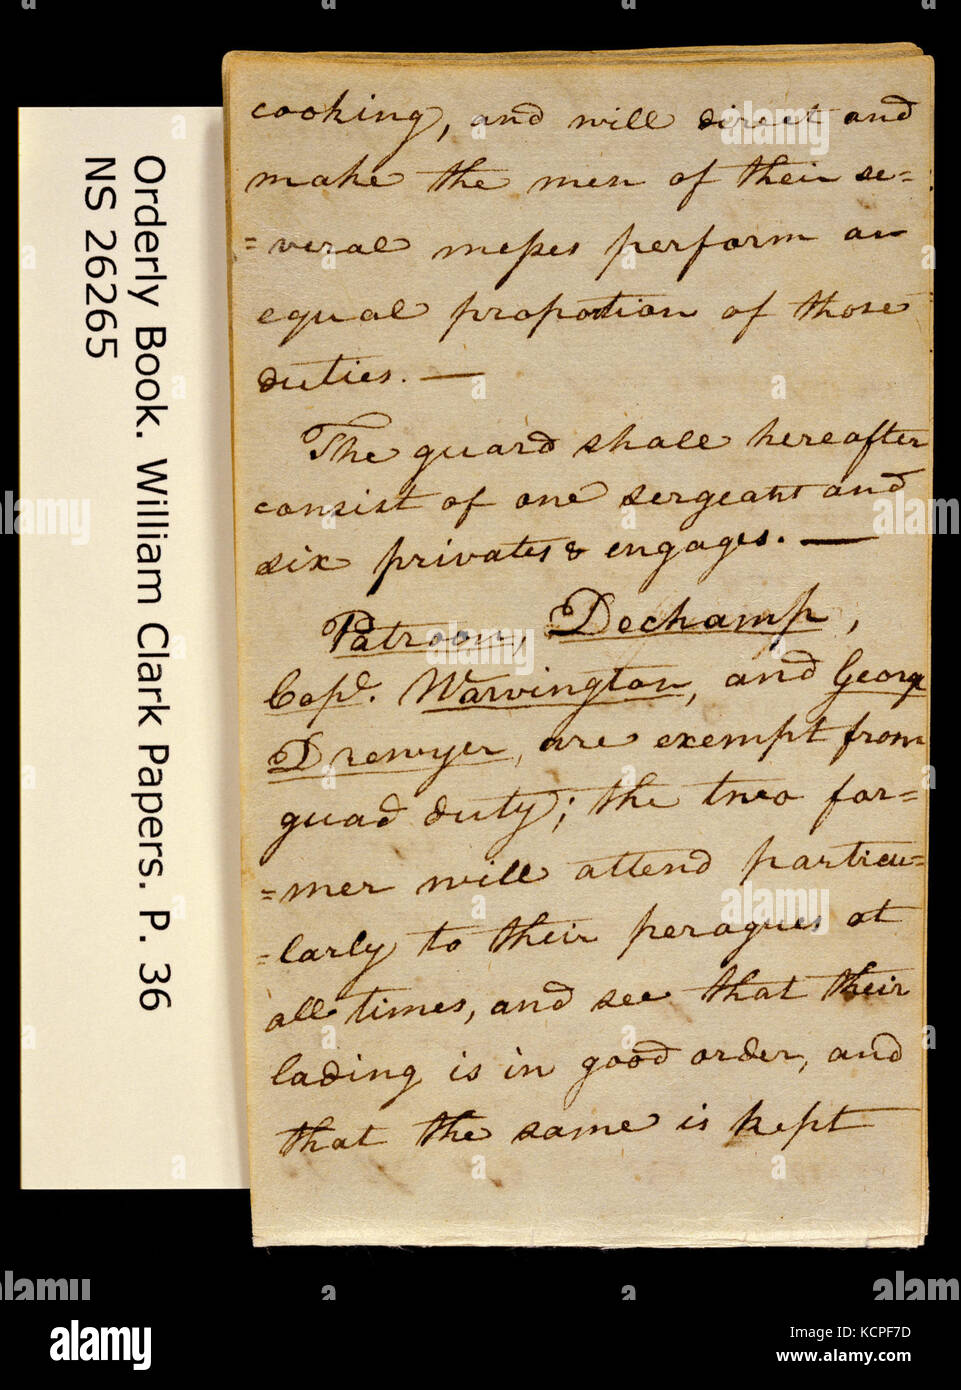 cooking, and will direct and
make the men of their se=
=veral messes perform an
equal propotion of those
duties. —
The guard shall hereafter
consist of one sergeant and
six privates & engages. —
Patroon, Dechamp,
Copl. Warvington, and George
Drewyer, are exempt from
guad duty; the two for=
=mer will attend particu=
=larly to their peragues at
all times, and see that their
lading is in good order, and
that the same is kept
Orderly Book. William Clark Papers. P. 36
NS 26265
alamy
a
alamy stock photo
KCPF7D
www.alamy.com